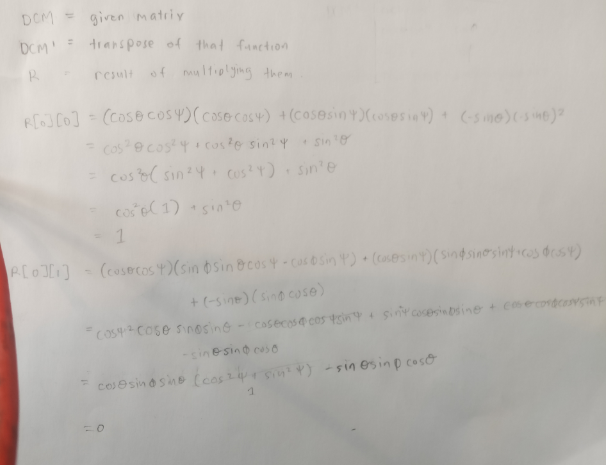 DCM = given matrix
DCM' = transpose of that function
R = result of multiplying them
R[0][0] = (cosθ cosΨ)(cosθ cosΨ) + (cosθ sinΨ)(cosθ sinΨ) + (-sinθ)(-sinθ)²
= cos²θ cos²Ψ + cos²θ sin²Ψ + sin²θ
= cos²θ( sin²Ψ + cos²Ψ) + sin²θ
= cos²θ(1) + sin²θ
= 1
R[0][1] = (cosθcosΨ)(sinϕ sinθ cosΨ - cosϕ sinΨ) + (cosθsinΨ)(sinϕ sinθ sinΨ + cosϕ cosΨ)
+ (-sinθ)(sinϕ cosθ)
= cosΨ² cosθ sinϕ sinθ - cosθ cosϕ cosΨ sinΨ + sin²Ψ cosθ sinϕ sinθ + cosθ cosϕ cosΨ sinΨ
- sinθ sinϕ cosθ
= cosθ sinϕ sinθ (cos²Ψ + sin²Ψ) - sinθ sinϕ cosθ
1
= 0